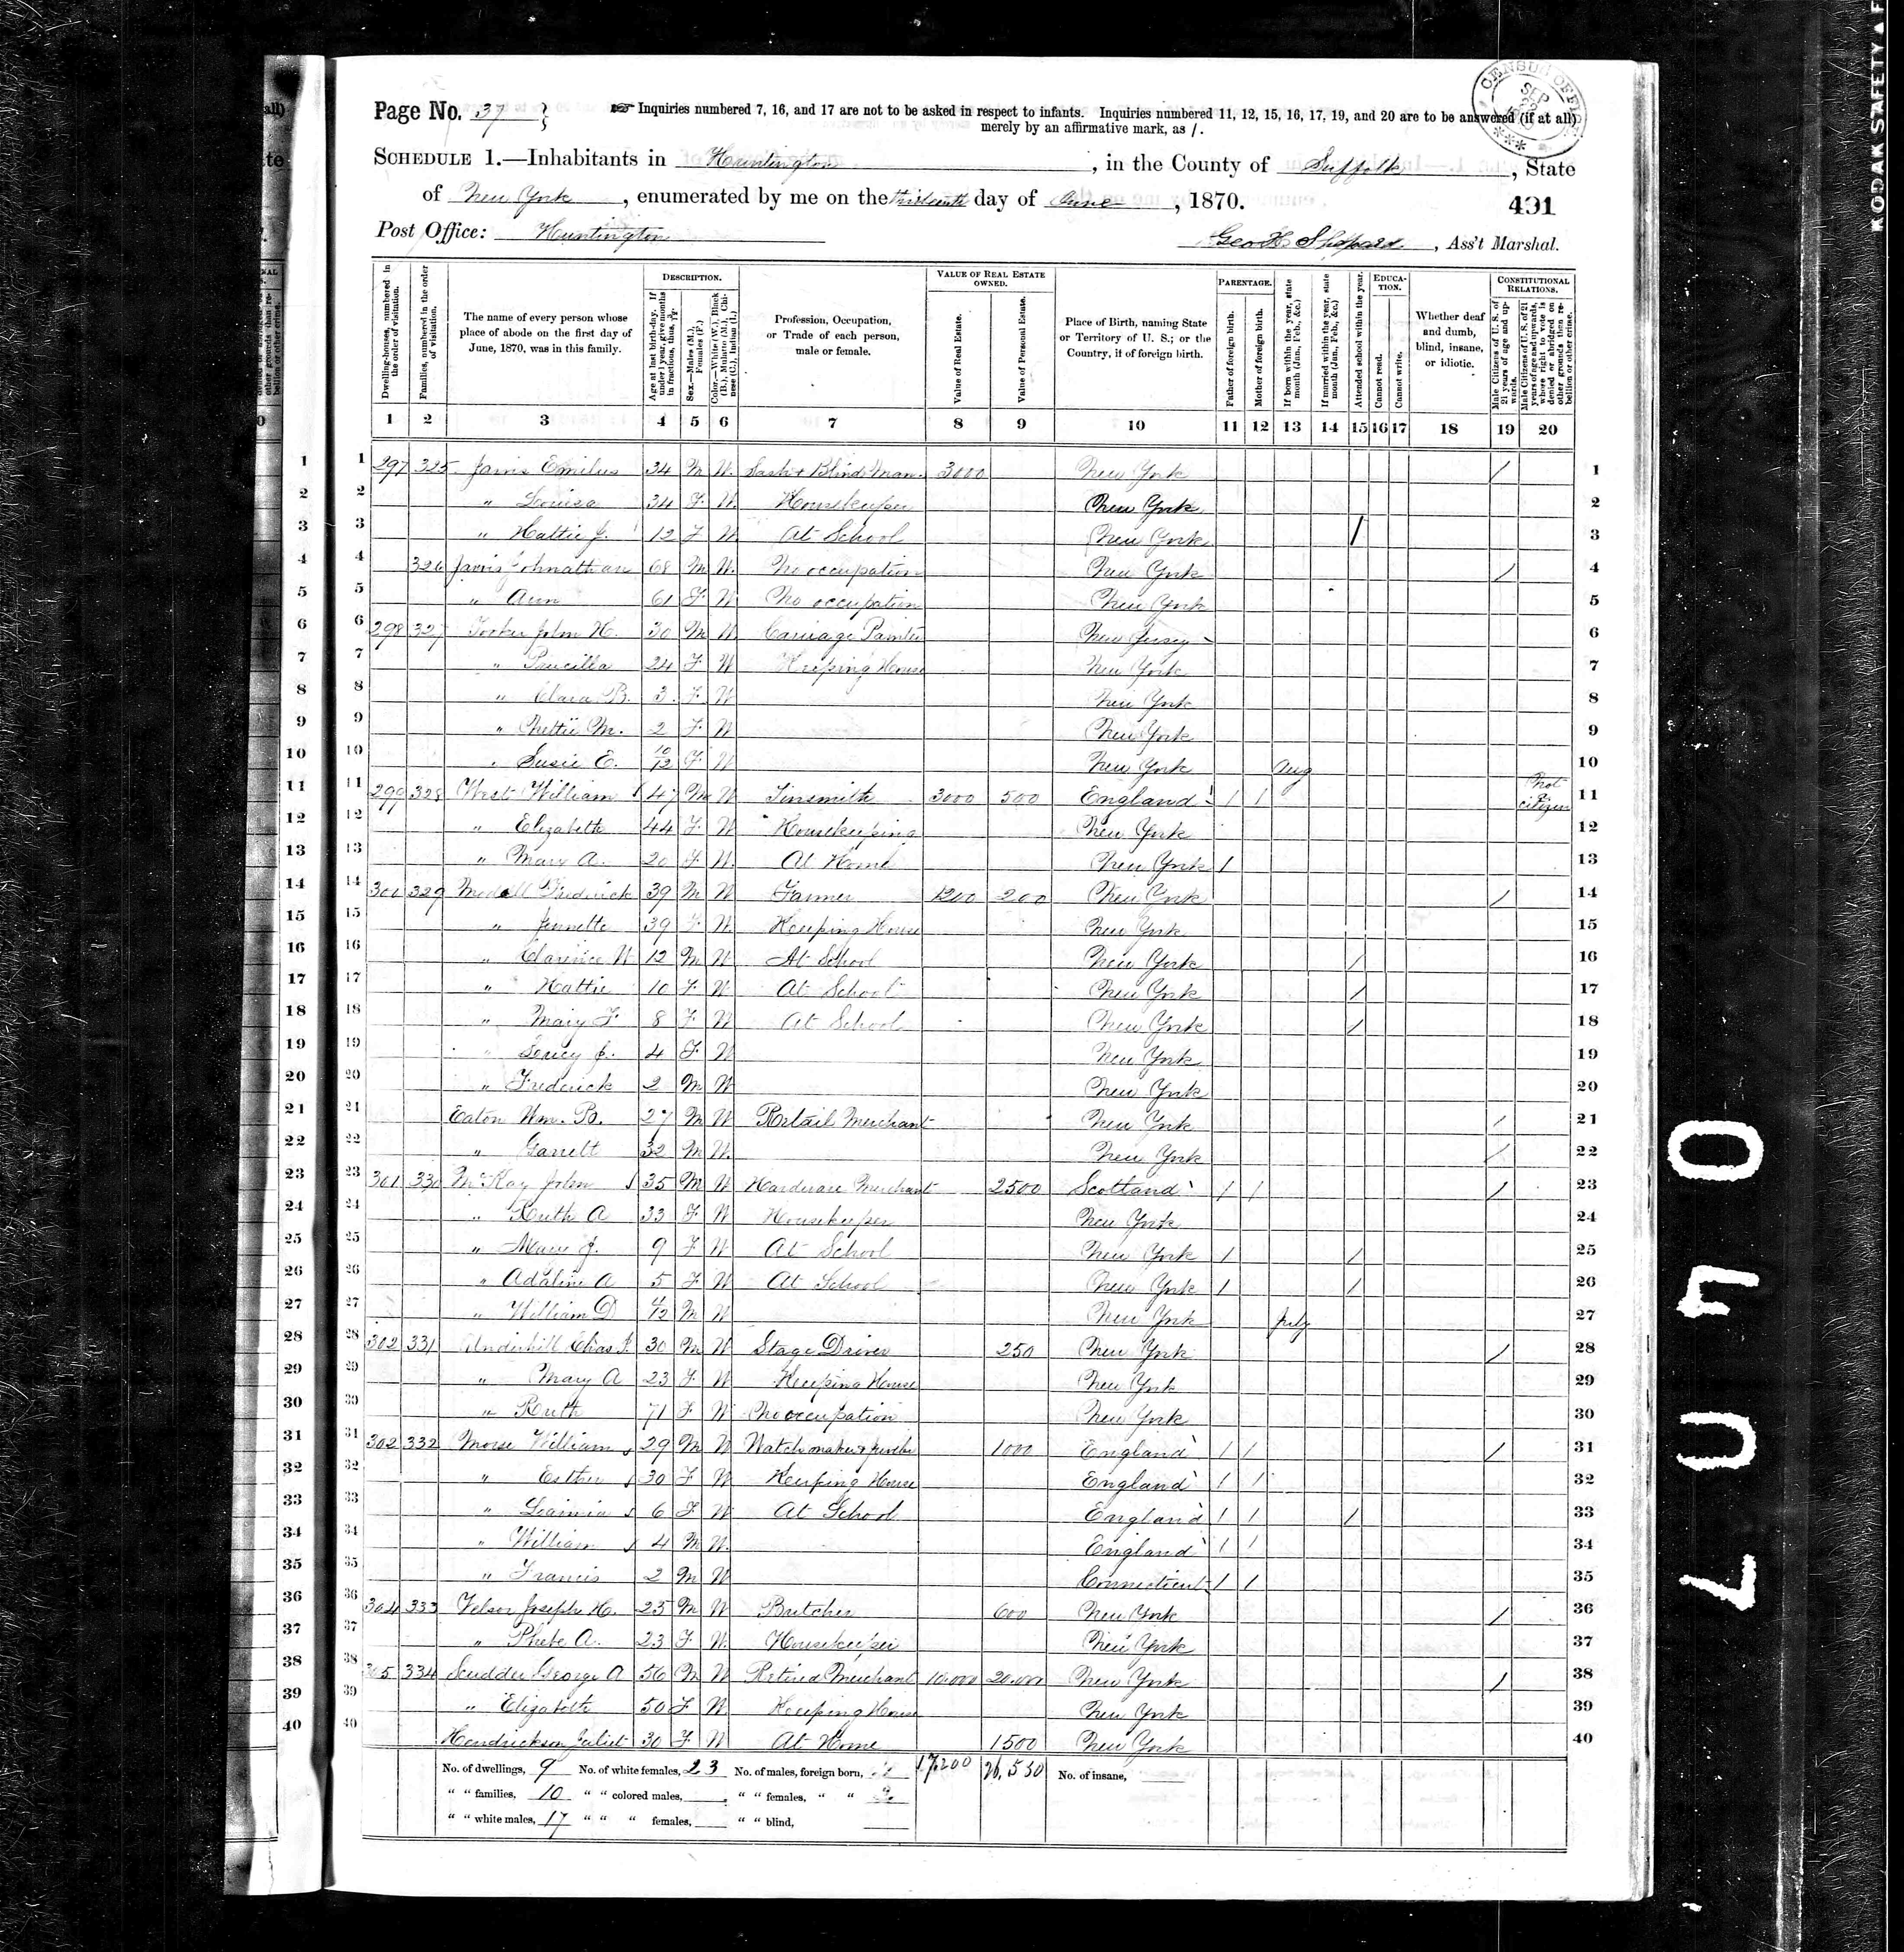 Page No. 37
Inquiries numbered 7, 16, and 17 are not to be asked in respect to infants. Inquiries numbered 11, 12, 15, 16, 17, 19, and 20 are to be answered (if at all)
merely by an affirmative mark, as /.
CENSUS OFFICE SEP
SCHEDULE 1.—Inhabitants in Huntington, in the County of Suffolk, State
of New York, enumerated by me on the thirteenth day of June, 1870.
491
Post Office: Huntington
Geo H. Shepard, Ass't Marshal.
Dwelling-houses, numbered in the order of visitation.
Families, numbered in the order of visitation.
The name of every person whose place of abode on the first day of June, 1870, was in this family.
DESCRIPTION.
Age at last birth-day. If under 1 year, give months in fractions, thus, 3/12.
Sex.—Males (M.), Females (F.)
Color.—White (W.), Black (B.), Mulatto (M.), Chinese (C.), Indian (I.)
Profession, Occupation, or Trade of each person, male or female.
VALUE OF REAL ESTATE OWNED.
Value of Real Estate.
Value of Personal Estate.
Place of Birth, naming State or Territory of U. S.; or the Country, if of foreign birth.
PARENTAGE.
Father of foreign birth.
Mother of foreign birth.
If born within the year, state month (Jan., Feb., &c.)
If married within the year, state month (Jan., Feb., &c.)
Attended school within the year.
EDUCATION.
Cannot read.
Cannot write.
Whether deaf and dumb, blind, insane, or idiotic.
CONSTITUTIONAL RELATIONS.
Male Citizens of U. S. of 21 years of age and upwards.
Male Citizens of U. S. of 21 years of age and upwards, whose right to vote is denied or abridged on other grounds than rebellion or other crime.
1 2 3 4 5 6 7 8 9 10 11 12 13 14 15 16 17 18 19 20
1 1 297 325 Jarvis Emilus 34 M W. Sash & Blind Man. 3000 New York / 1
2 2 " Louisa 34 F. W. Housekeeper New York 2
3 3 " Hattie J. 12 F W At School New York / 3
4 4 326 Jarvis Johnathan 68 M W. No occupation New York / 4
5 5 " Ann 61 F. W No occupation New York 5
6 6 298 327 John H. 30 M W Carriage Painter New Jersey 6
7 7 " Priscilla 24 F W Keeping House New York 7
8 8 " Clara B. 3 F. W New York 8
9 9 " Nettie M. 2 F W New York 9
10 10 " Susie E. 10/12 F W New York Aug 10
11 11 299 328 West William 47 M W Tinsmith 3000 500 England / / Not a citizen 11
12 12 " Elizabeth 44 F. W Housekeeping New York 12
13 13 " Mary A. 20 F W. At Home New York / 13
14 14 300 329 Frederick 39 M W Farmer 1200 200 New York / 14
15 15 " Jennette 39 F W. Keeping House New York 15
16 16 " Clarence W 12 M W At School New York / 16
17 17 " Hattie 10 F W At School New York / 17
18 18 " Mary F. 8 F W At School New York / 18
19 19 " J. 4 F W New York 19
20 20 " Frederick 2 M W New York 20
21 21 Eaton Wm. B. 27 M W Retail Merchant New York / 21
22 22 " Garrett 32 M W. New York / 22
23 23 301 330 McKay John 35 M W Hardware Merchant 2500 Scotland / / / 23
24 24 " Ruth A 33 F W Housekeeper New York 24
25 25 " Mary J. 9 F W At School New York / / 25
26 26 " Adaline A 5 F W At School New York / / 26
27 27 " William D M W New York July 27
28 28 302 331 Underhill 30 M W Stage Driver 250 New York / 28
29 29 " Mary A 23 F W Keeping House New York 29
30 30 " Ruth 71 F W No occupation New York 30
31 31 302 332 Morse William 29 M W Watchmaker & 1000 England / / / 31
32 32 " Esther 30 F W Keeping House England / / 32
33 33 " 6 F W At School England / / / 33
34 34 " William 4 M W. England / / 34
35 35 " Francis 2 M W Connecticut / / 35
36 36 304 333 Velsor Joseph H. 25 M W Butcher 600 New York / 36
37 37 " Phebe A. 23 F W. Housekeeper New York 37
38 38 305 334 Scudder George A 56 M W Retired Merchant 10.000 20.000 New York / 38
39 39 " Elizabeth 50 F W Keeping House New York 39
40 40 Hendrickson Juliet 30 F W At Home 1500 New York 40
No. of dwellings, 9 No. of white females, 23 No. of males, foreign born, 17.200 26,550 No. of insane,
" " families, 10 " " colored males, " " females, " "
" " white males, 17 " " " females, " " blind,
KODAK SAFETY